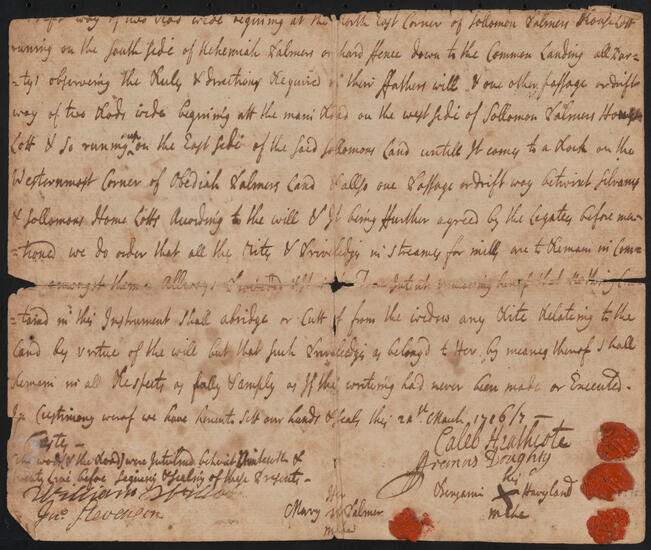 way of two Rods wide begining at the North East Corner of Sollomon Palmers House Lott
running on the South side of Nehemiah Palmers orchard ffence down to the Common Landing all Par-
-tys observing the Rules & directions Required in their ffathers will & one other passage or drift
way of two Rods wide begining att the main Road on the west side of Sollomon Palmers House
Lott & so running on the East side of the said Sollomons Land untill It comes to a Rock on the
Westernmost Corner of Obediah Palmers Land & allso one Passage or drift way betwixt Silvanus
& Sollomons Home Lotts Acording to the will & It being ffurther agreed by the Legates before men-
-tioned we do order that all the Rits & Priviledges in streames for mills are to Remain in Com-
amongst them allways
-taind in this Instrument Shall abridge or Cutt of from the widow any Rite Relating to the
Land by virtue of the will but that such Priviledges as belongd to Her by meanes thereof shall
Remain in all Respects as fully & amply as If this writing had never been made or Executed -
In Testimony werof we have hereunto Sett our hands & Seals this 24th March 1716/7 -
Teste -
the words (& the Road) were Interlined betwixt &
twenty five before Signing & Sealing of these Presents -
Caleb Heathcote
William
Jno. Stevenson
Mary Palmer
mark
Benjamin his X Havyland
marke